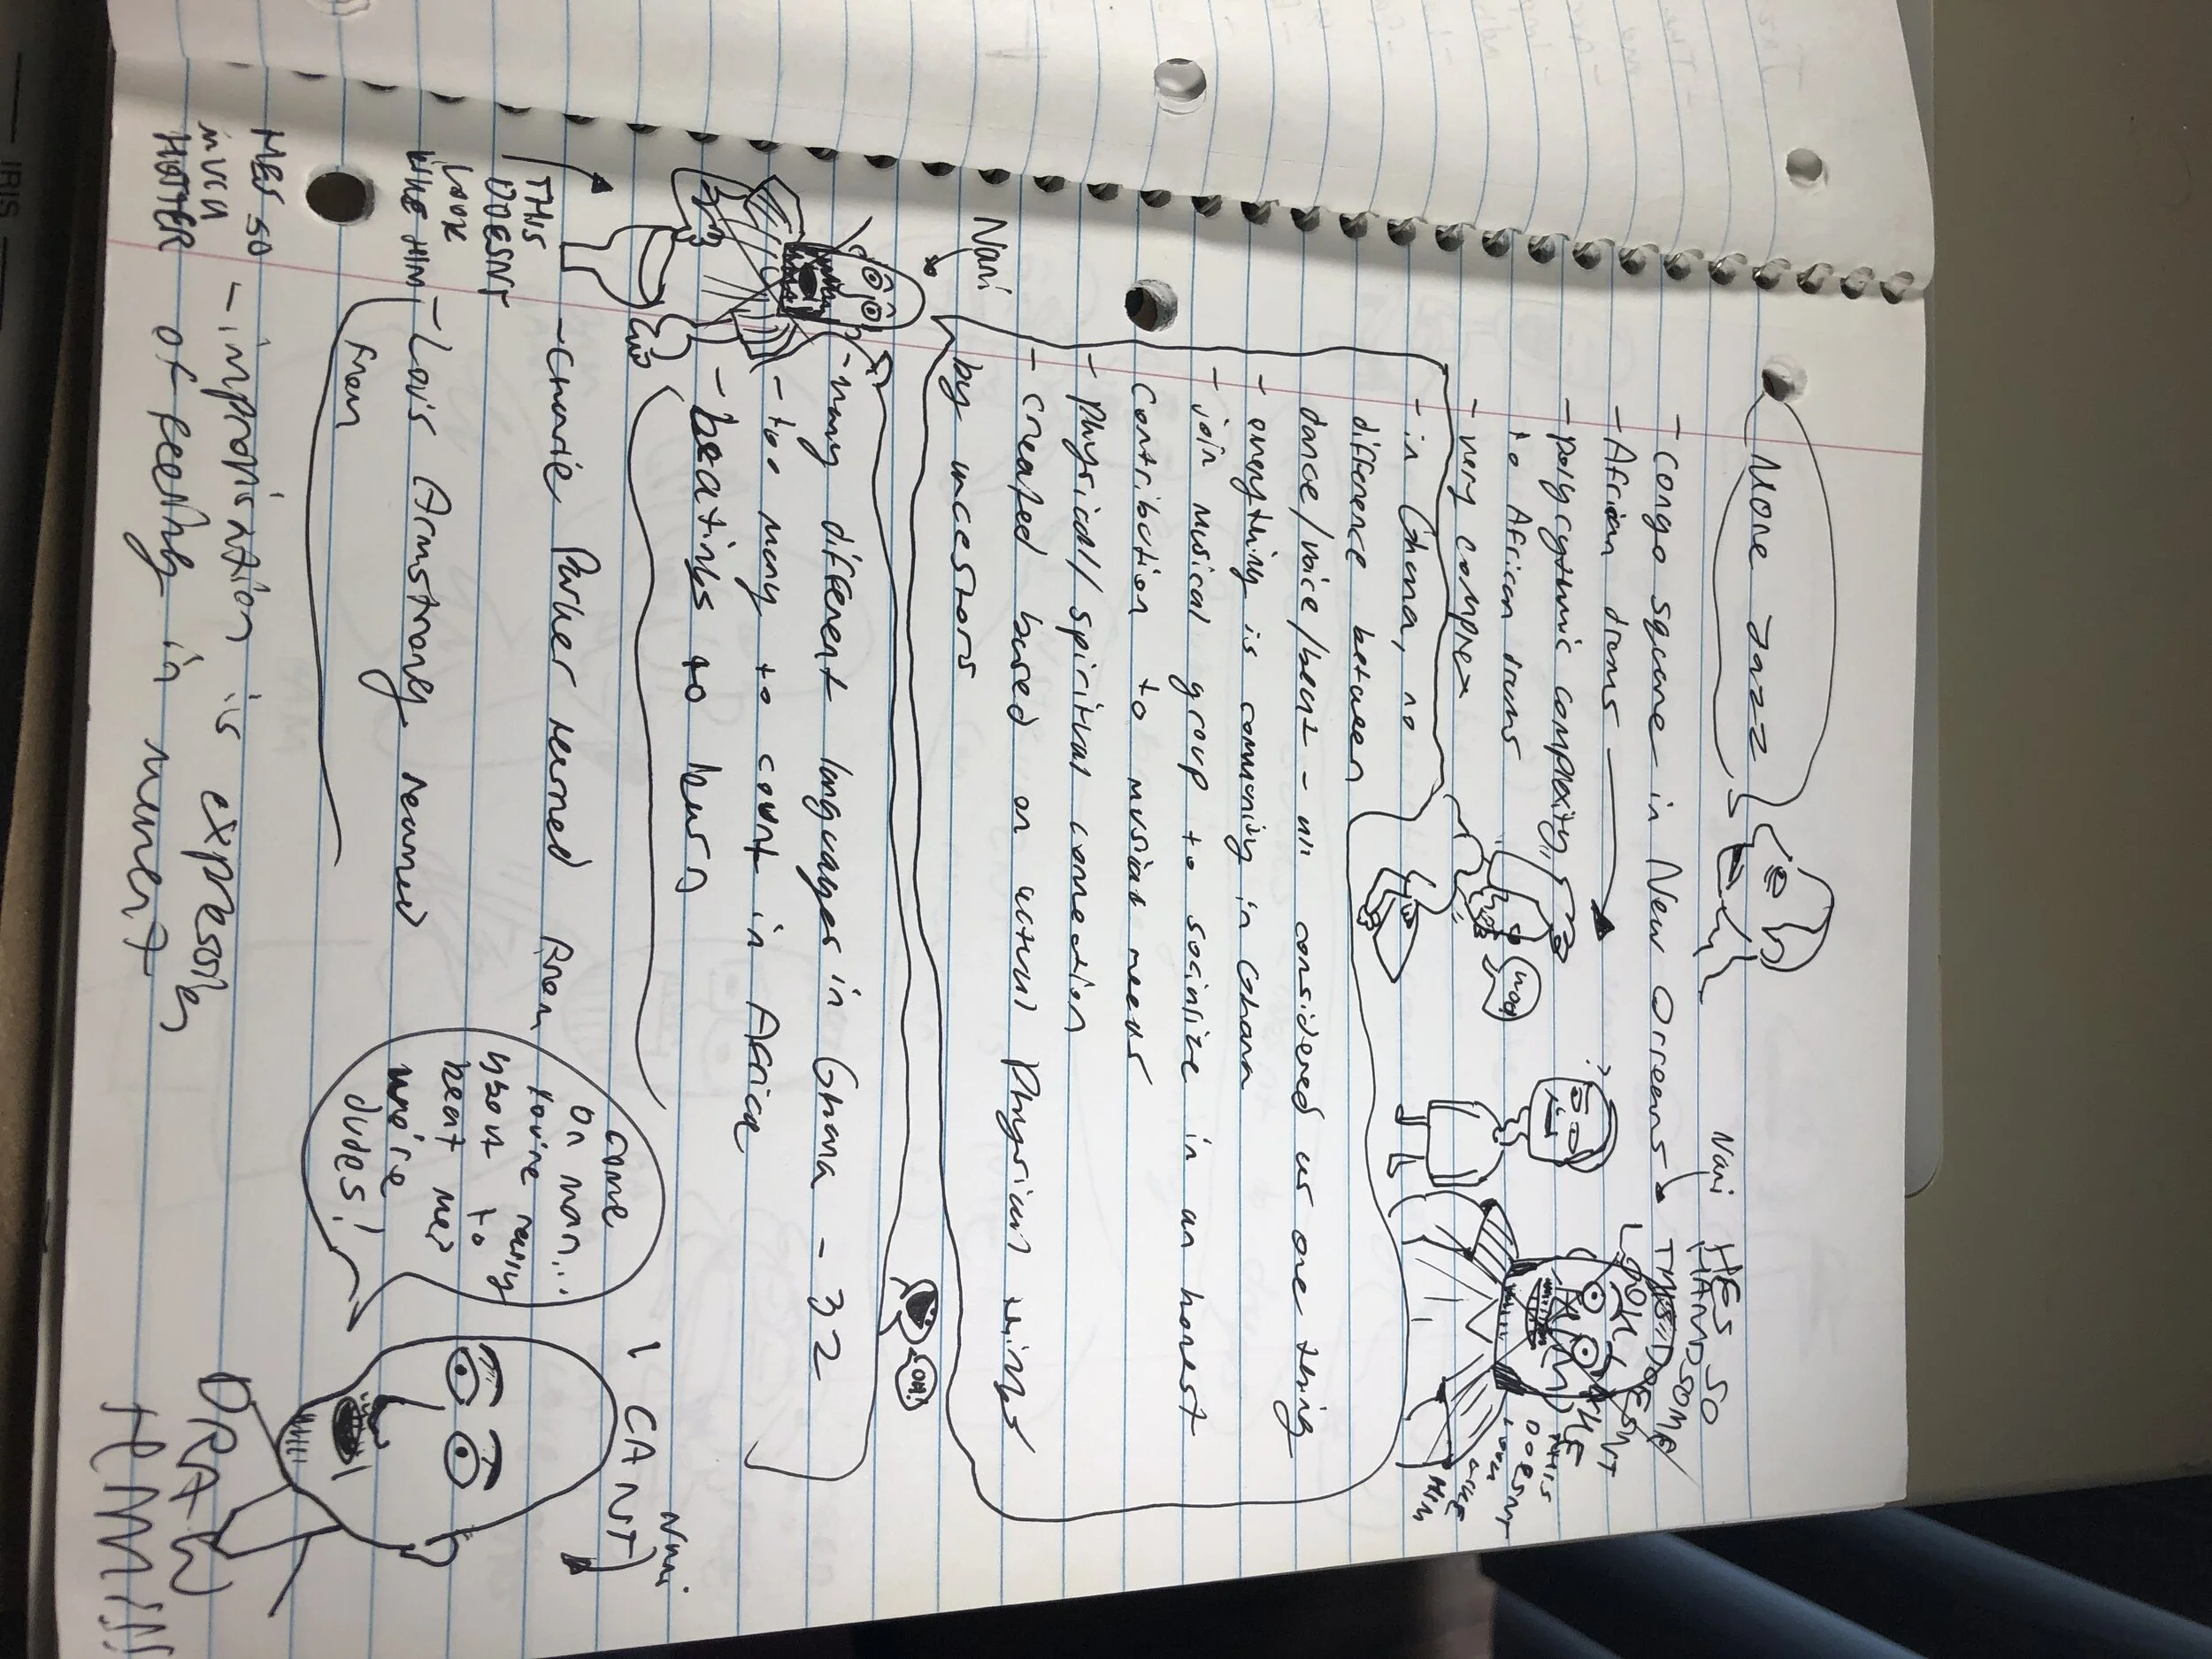 More Jazz
Nani
HES SO
HANDSOME
- congo square in New Orleans
THIS DOESNT
LOOK LIKE
HIM
- African drums
- polyrythmic complexity
to African drums
- very complex
THIS
DOESNT
LOOK
LIKE
HIM
- in Ghana, no
difference between
dance/voice/beat - all considered as one thing
- everything is community in Ghana
- join musical group to socialize in an honest
contribution to musical needs
- Physical/spiritual connection
- created based on actual Physical things
by ancestors
Nani
OH!
- many different languages in Ghana - 32
- too many to count in Africa
- beatings to learn
THIS
DOESNT
LOOK
LIKE HIM
- Charlie Parker learned from
- Lois Armstrong learned
from
come
on man...
you're really
about to
beat me?
we're
dudes!
Nani
I CANT
DRAW
HIM!!!!
HES SO
MUCH
HOTTER
- improvisation is expressily
of feeling in moment
IRIS